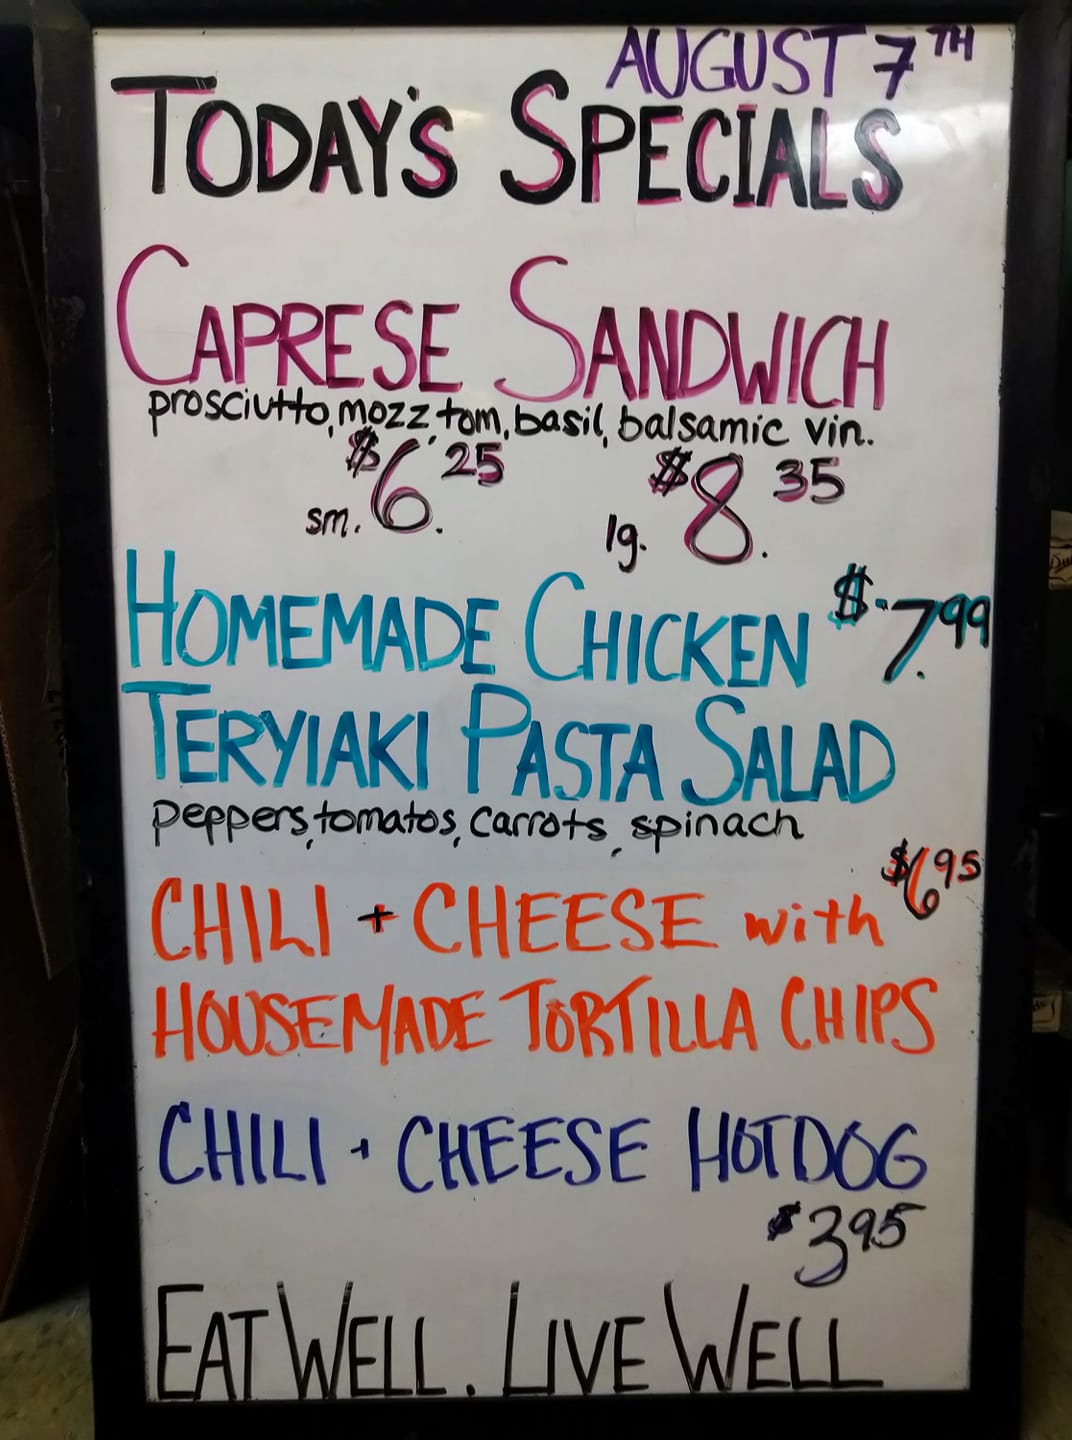 AUGUST 7TH
TODAY'S SPECIALS
CAPRESE SANDWICH
prosciutto, mozz, tom, basil, balsamic vin.
sm. $6.25 lg. $8.35
HOMEMADE CHICKEN $7.99
TERYIAKI PASTA SALAD
peppers, tomatos, carrots, spinach
CHILI + CHEESE with $6.95
HOUSEMADE TORTILLA CHIPS
CHILI + CHEESE HOTDOG
$3.95
EAT WELL. LIVE WELL